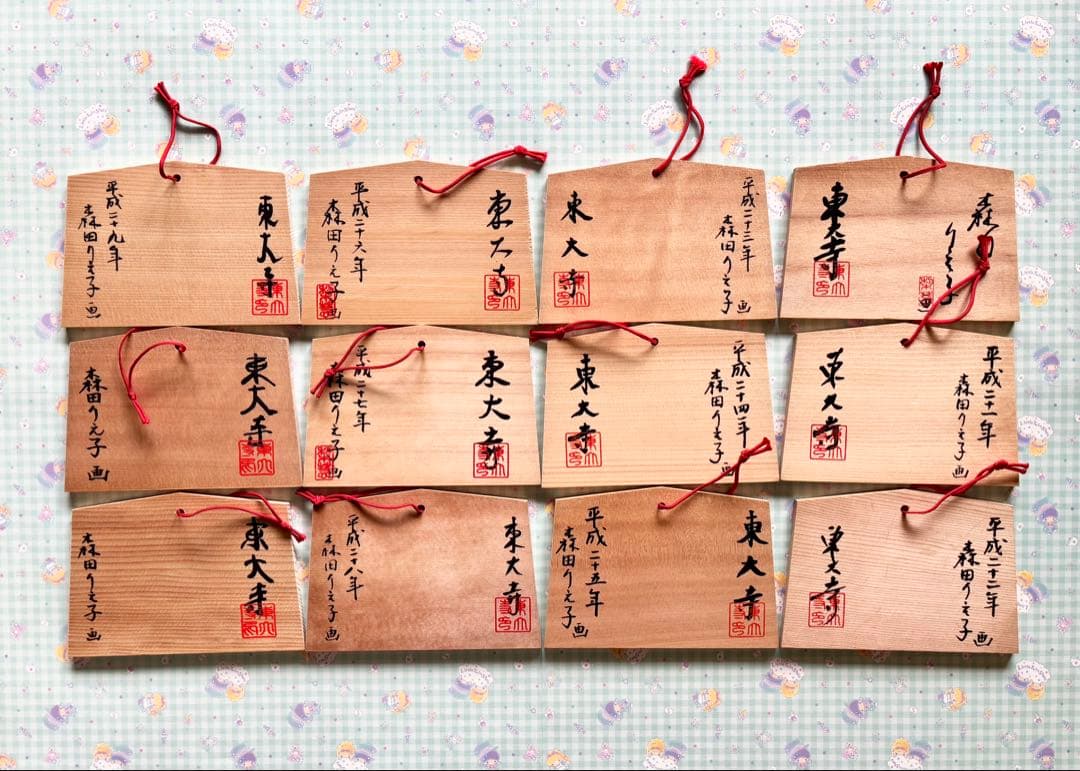 東大寺
平成二十九年
森田りえ子 画
東大寺
平成二十六年
森田りえ子 画
平成二十三年
森田りえ子 画
東大寺
森田りえ子 画
東大寺
東大寺
森田りえ子 画
東大寺
平成二十七年
森田りえ子 画
平成二十四年
森田りえ子 画
東大寺
平成二十一年
森田りえ子 画
東大寺
東大寺
森田りえ子 画
東大寺
平成二十八年
森田りえ子 画
東大寺
平成二十五年
森田りえ子 画
平成二十二年
森田りえ子 画
東大寺